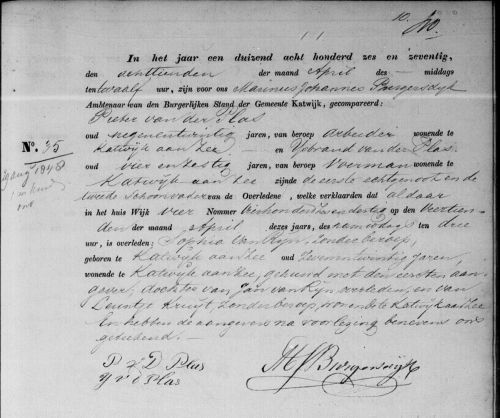 10.
In het jaar een duizend acht honderd zes en zeventig,
den achttienden der maand April des — middags
ten twaalf ure, zijn voor ons Marinus Johannes Burgersdijk
Ambtenaar van den Burgerlijken Stand der Gemeente Katwijk, gecompareerd:
Pieter van der Plas
N°. 35
oud negenentwintig jaren, van beroep arbeider wonende te
Katwijk aan Zee en IJsbrand van der Plas
oud vier en zestig jaren, van beroep Voerman wonende te
Katwijk aan Zee zijnde de eerste echtgenoot en de
tweede schoonvader van de Overledene, welke verklaarden dat aldaar
in het huis Wijk vier Nommer op den veertien-
den der maand April dezes jaars, des namiddags ten drie
ure, is overleden: Sophia van Rijn, zonder beroep,
geboren te Katwijk aan Zee oud zevenentwintig jaren,
wonende te Katwijk aan Zee, gehuwd met den eersten aan-
gever, dochter van Jan van Rijn, overleden, en van
Leuntje Kruijt, zonder beroep, wonende te Katwijk aan Zee
En hebben de aangevers na voorlezing benevens ons
geteekend.—
P v D Plas
IJ v d Plas
MJBurgersdijk